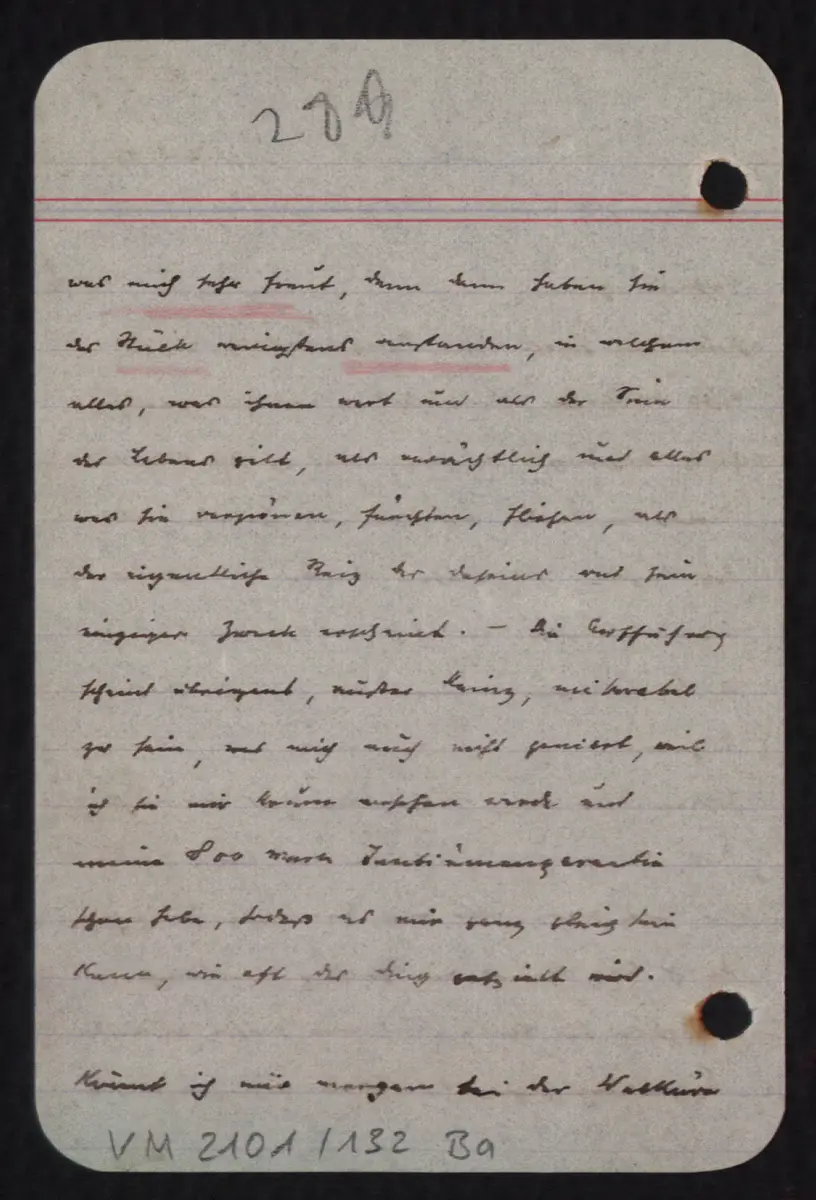 289
was mich sehr freut, denn dann haben sie
das Stück wenigstens verstanden, in welchem
alles, was ihnen wert und als der Sinn
des Lebens gilt, als verächtlich und alles
was sie verpönen, fürchten, fliehen, als
der eigentliche Reiz des Daseins und sein
einziger Zweck erscheint. – Die Aufführung
scheint übrigens, außer Kainz, miserabel
zu sein, was mich auch nicht geniert, weil
ich sie mir kaum ansehen werde und
meine 800 Mark Tantièmengarantie
schon habe, sodaß es mir ganz gleich sein
kann, wie oft das Ding gespielt wird.
Könnt ich nur morgen bei der Walküre
VM 2101 / 132 Ba